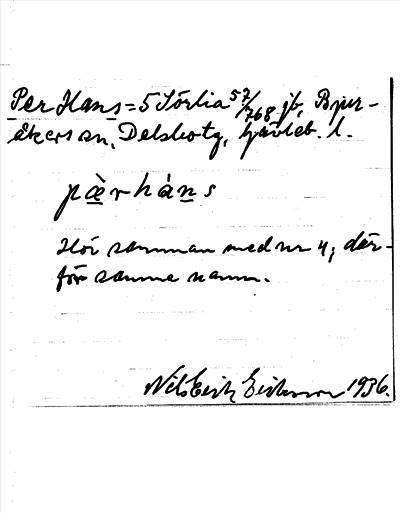 Per Hans = 5 Sörlia 57/768 jb, Bjur-
åkers sn, Delsbo tg, Gävleb. l.
pàr hàns
Hör samman med nr 4, där-
för samma namn.
Nils Erik Eriksson 1936.